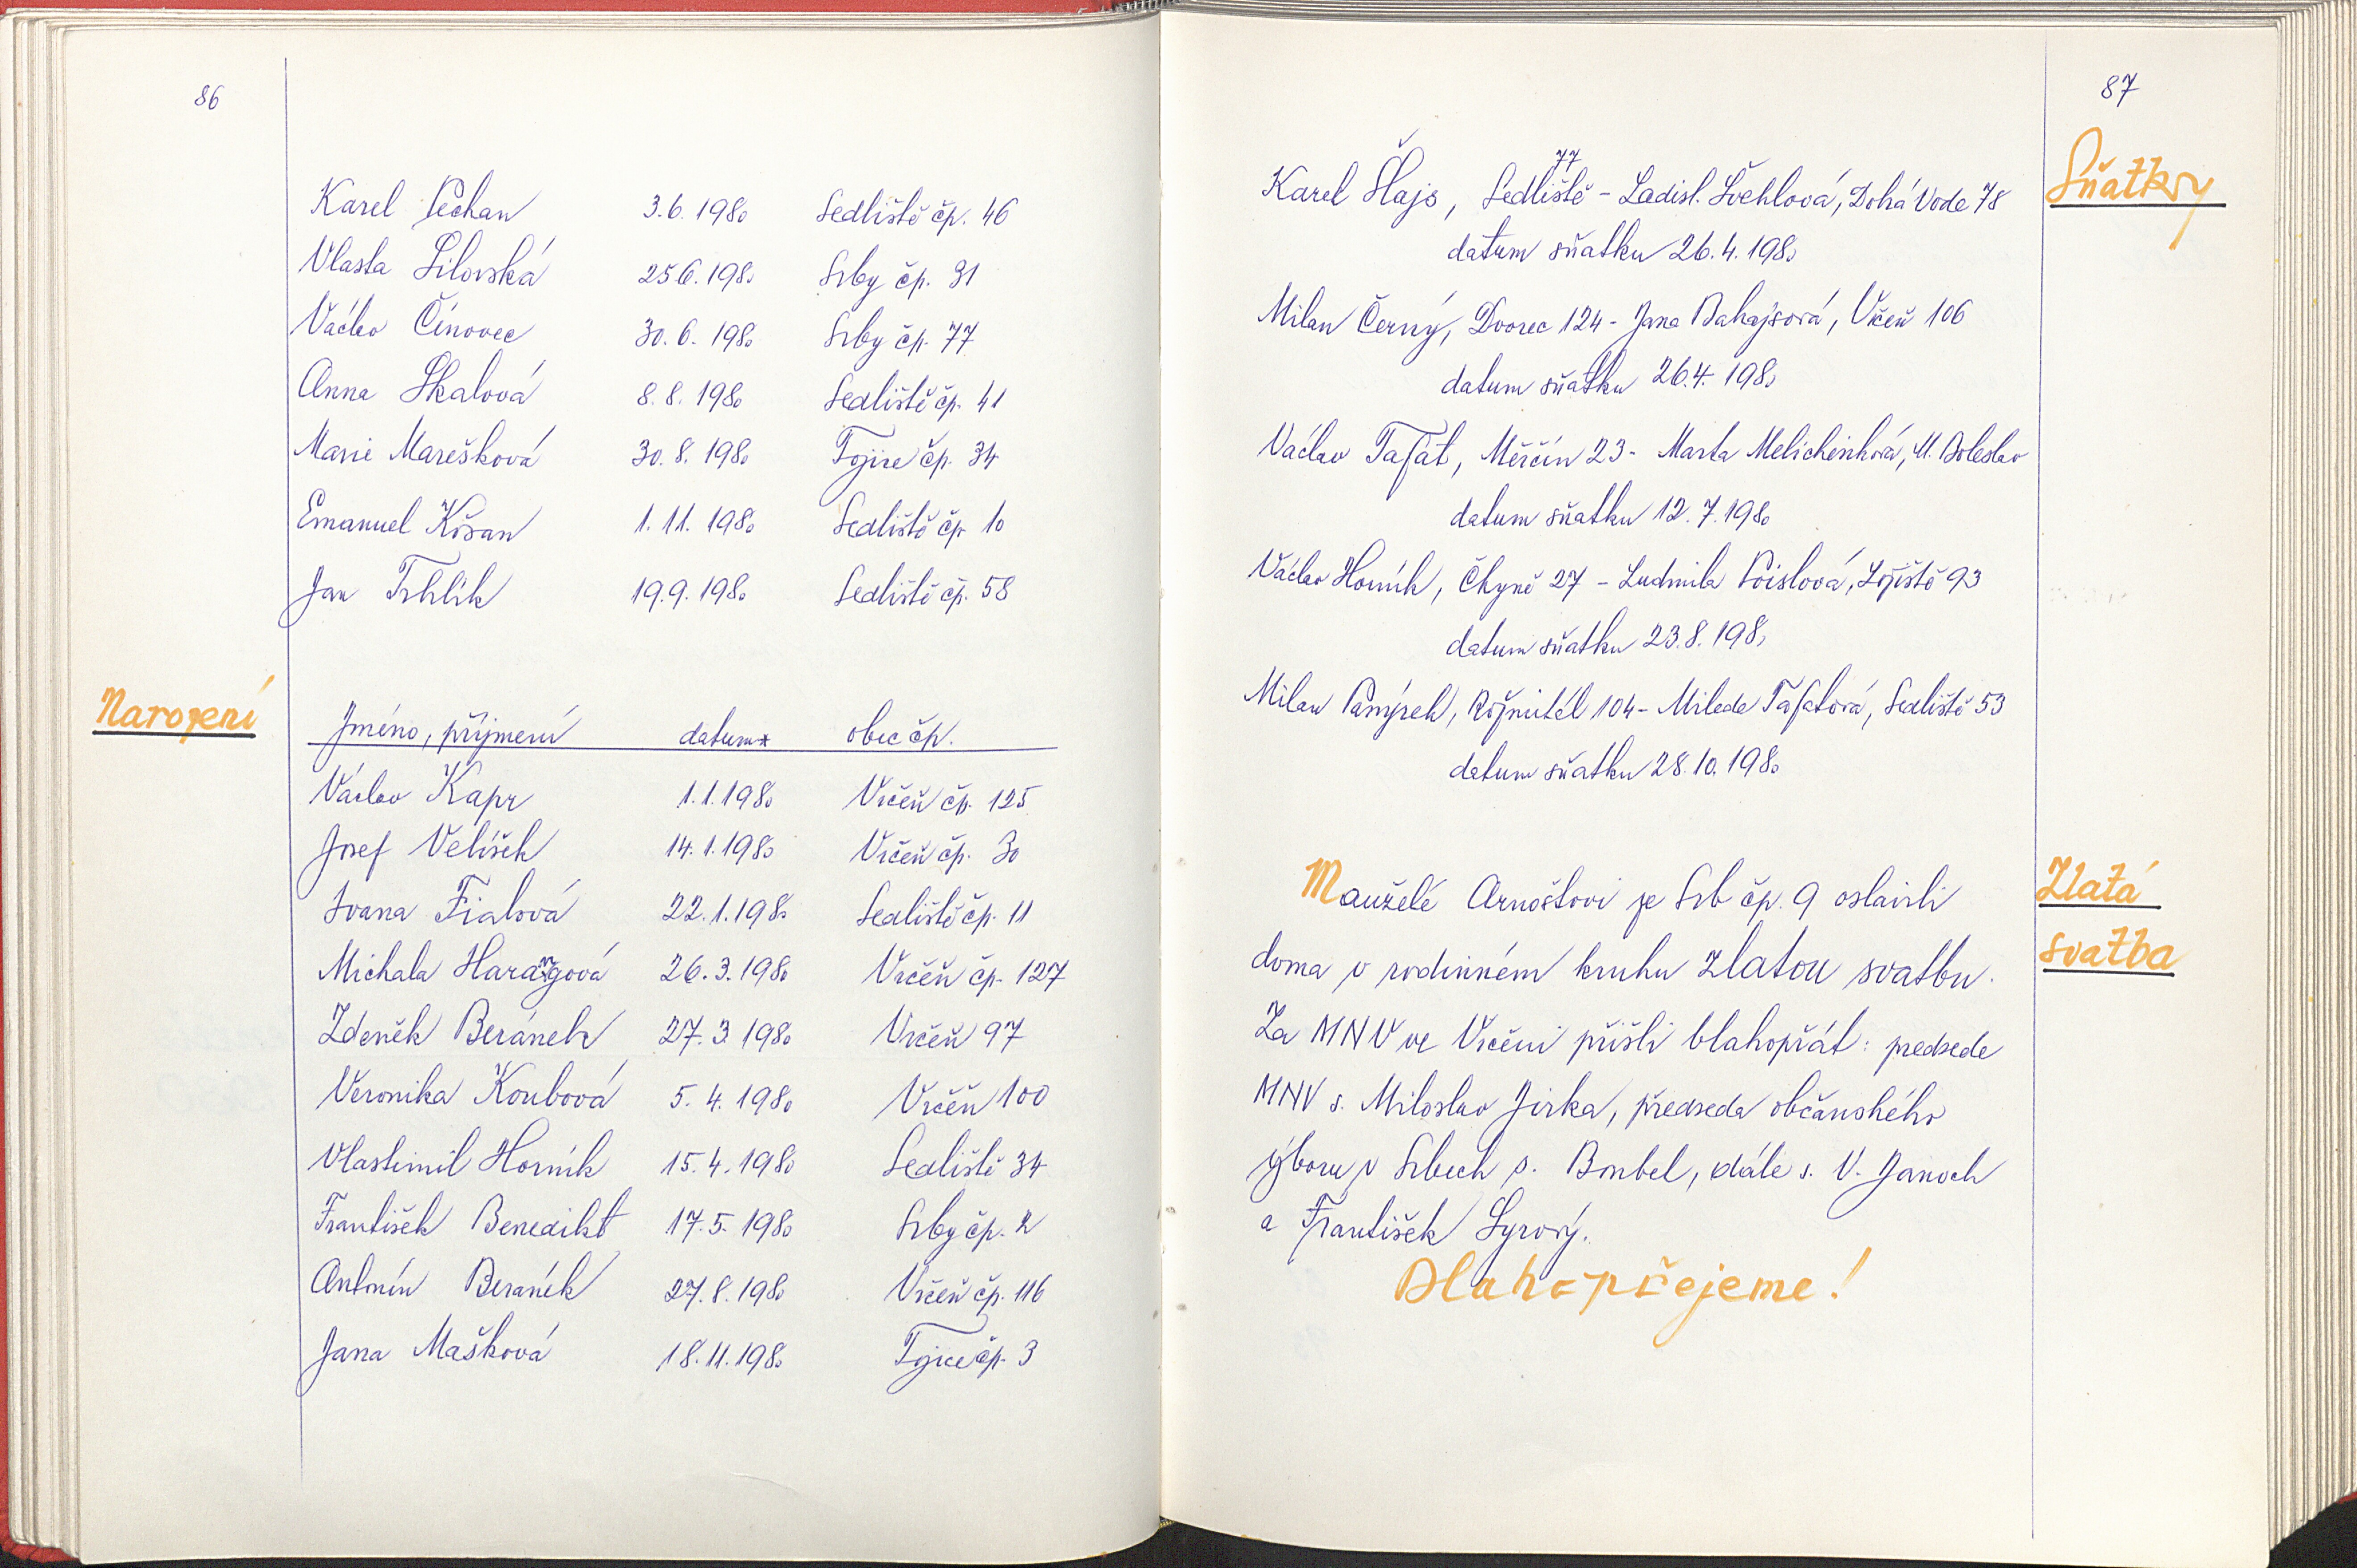 86
Karel Pechan 3.6.1980 Sedliště čp. 46
Vlasta Silovská 25.6.1980 Srby čp. 31
Václav Činovec 30.6.1980 Srby čp. 77
Anna Skalová 8.8.1980 Sedliště čp. 41
Marie Marešková 30.8.1980 Tojice čp. 34
Emanuel Kosan 1.11.1980 Sedliště čp. 10
Jan Trhlík 19.9.1980 Sedliště čp. 58
Narození
Jméno, příjmení datum * obec čp.
Václav Kapr 1.1.1980 Vrčeň čp. 125
Josef Velíšek 14.1.1980 Vrčeň čp. 30
Ivana Fialová 22.1.1980 Sedliště čp. 11
Michala Harangová 26.3.1980 Vrčeň čp. 127
Zdeněk Beránek 27.3.1980 Vrčeň 97
Veronika Koubová 5.4.1980 Vrčeň 100
Vlastimil Horník 15.4.1980 Sedliště 34
František Benedikt 17.5.1980 Srby čp. 2
Antonín Beránek 27.8.1980 Vrčeň čp. 116
Jana Mašková 18.11.1980 Tojice čp. 3
87
Sňatky
77
Karel Šlajs, Sedliště - Ladisl. Švehlová, Dobrá Voda 78
datum sňatku 26.4.1980
Milan Černý, Dvorec 124 - Jana Bahajsová, Vrčeň 106
datum sňatku 26.4.1980
Václav Tafat, Měrčín 23 - Marta, M. Boleslav
datum sňatku 12.7.1980
Václav Horník, Čkyně 27 - Ludmila Voislová, 93
datum sňatku 23.8.1980
Milan, Rožmitál 104 - Milada Tafatová, Sedliště 53
datum sňatku 28.10.1980
Zlatá
svatba
Manželé Arnoštovi ze Srb čp. 9 oslavili
doma v rodinném kruhu zlatou svatbu.
Za MNV ve Vrčeni přišli blahopřát: předseda
MNV s. Miloslav Jirka, předseda občanského
výboru v Srbech s. Bombel, dále s. V. Janoch
a František Syrový.
Blahopřejeme!